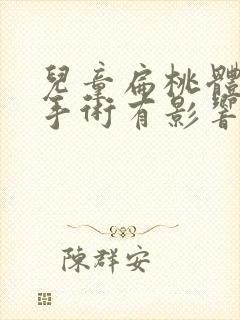 兒童扁桃體
手術有影響
陳群安